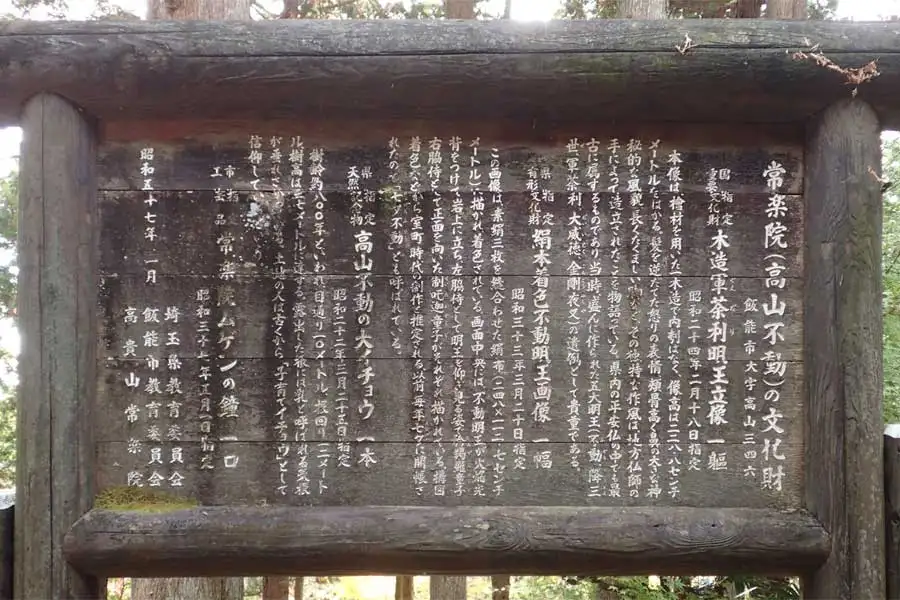 常楽院(高山不動)の文化財
飯能市大字高山三四六
国指定
重要文化財
木造軍荼利明王立像 一軀
ぐんだり
昭和二十四年二月十八日指定
本像は檜材を用いた一木造で内刳はなく、像高は二二八・八センチ
メートルをはかる。髪を逆だてた怒りの表情、頬骨高く鼻の大きな神
秘的な風貌、長くたくましい
その独特な作風は地方仏師の
手によって造立されたことを物語っている。県内の平安仏の中でも最
古に属するものであり当時盛んに作られた五大明王(不動、降三
世、軍荼利、大威徳、金剛夜叉)の遺例として貴重である。
県指定
有形文化財
絹本着色不動明王画像 一幅
昭和三十三年三月二十日指定
この画像は、素絹三枚を継合わせた絹布(二四八×一二七センチ
メートル)に描かれ着色されている。画面中央には不動明王が火焔光
背をつけて岩上に立ち、左脇侍として明王を仰ぎ見る姿の矜羯羅童子
右脇侍として正面を向いた制吒迦童子がそれぞれ描かれている。構図
着色などから室町時代の制作と推定される。以前、毎年七夕に開帳さ
れたので「七夕不動」とも呼ばれている。
県指定
天然記念物
高山不動の大イチョウ 一本
昭和二十二年三月二十五日指定
樹齢約八〇〇年といわれ目通り一〇メートル、根回り一二メート
ル、樹高は三七メートルに達する。露出した根には乳と呼ばれる気根
が垂れ
土地の人は古くから「子育てイチョウ」として
信仰して
市指定
工芸品
常楽院ムゲンの鐘 一口
昭和三十七年
月一日指定
昭和五十七年 一月
埼玉県教育委員会
飯能市教育委員会
高貴山常楽院